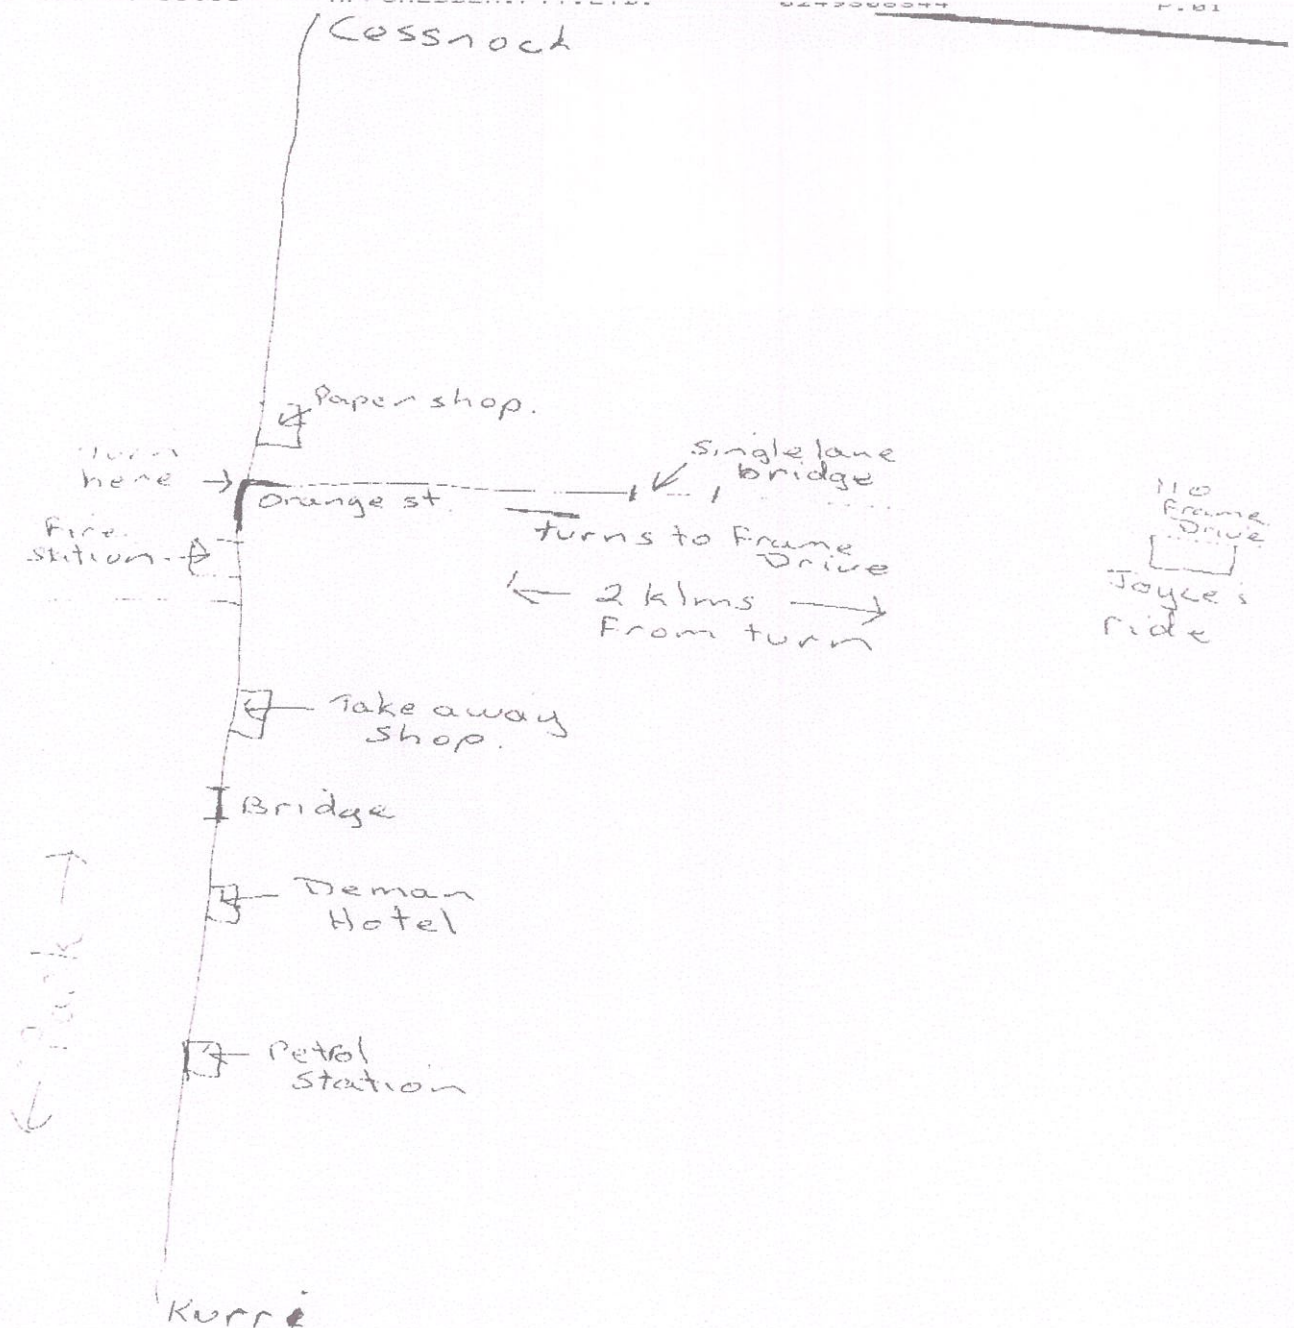 P.01
Cessnock
Paper shop.
Turn
here
Orange st.
Single lane
bridge
turns to Frame
Drive
110
Frame
Drive
Joyce's
ride
Fire
station
2 klms
From turn
Take away
shop.
Bridge
Deman
Hotel
Park
Petrol
Station
Kurri